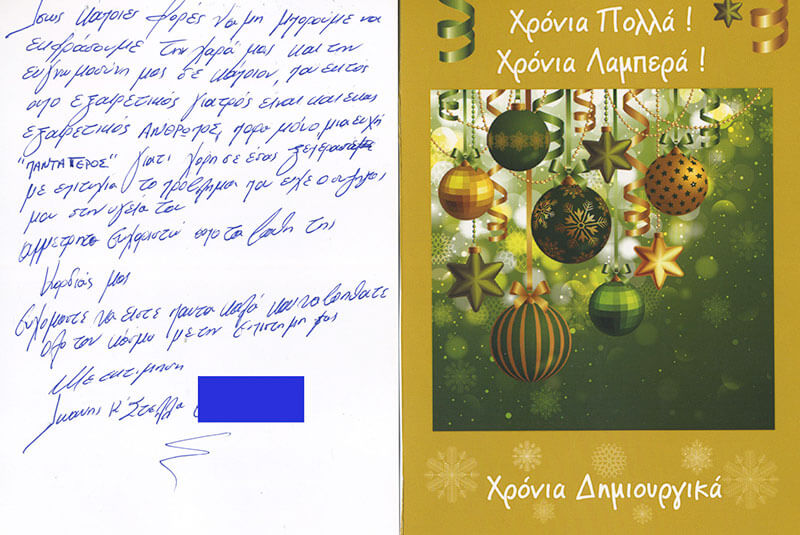 Ίσως κάποιες φορές να μη μπορούμε να
εκφράσουμε την χαρά μας και την
ευγνωμοσύνη μας σε κάποιον, που εκτός
από εξαιρετικός γιατρός είναι και ένας
εξαιρετικός ΑΝΘΡΩΠΟΣ, παρα μόνο μια ευχή
"ΠΑΝΤΑ ΓΕΡΟΣ" γιατι χάρη σε εσας ξεπεράσαμε
με επιτυχία το πρόβλημα που είχε ο συζηγος
μου στην υγεία του
αμμετρητα ευχαριστώ απο τα βαθη της
καρδιάς μας
Ευχομαστε να είστε παντα καλά και να βοηθατε
όλο τον κόσμο με την επιστημη σας
Με εκτιμηση
Ιωαννης κ' Στέλλα
Χρόνια Πολλά !
Χρόνια Λαμπερά !
Χρόνια Δημιουργικά